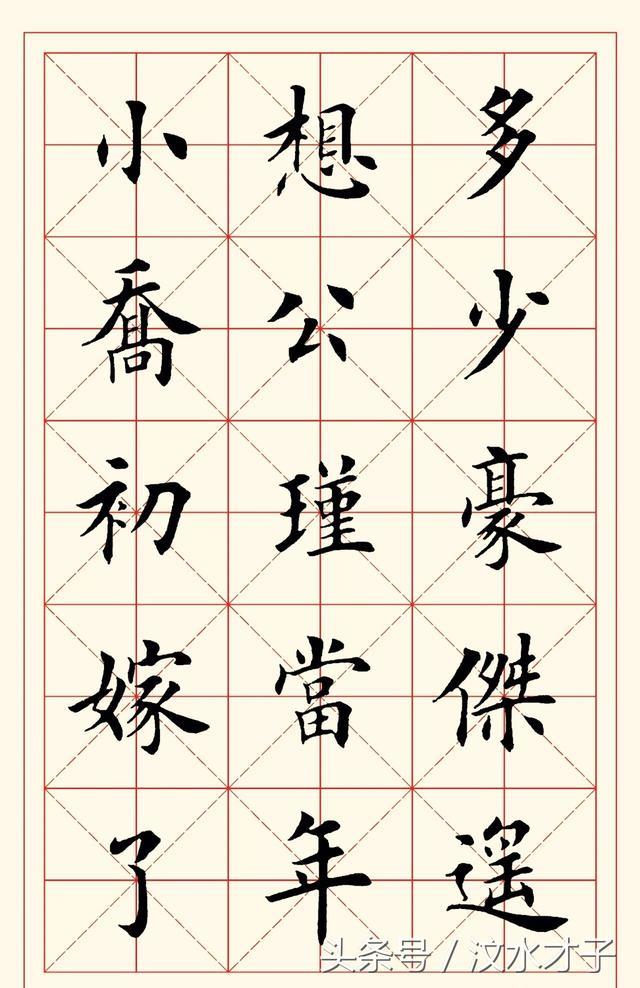 多少豪傑遥
想公瑾當年
小喬初嫁了
头条号 / 汶水才子